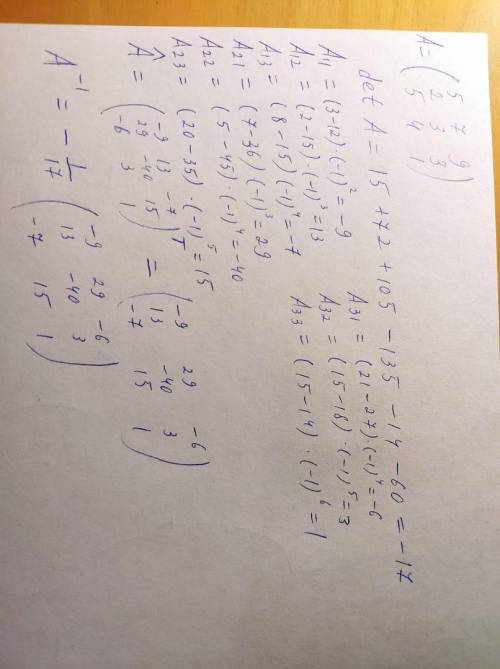 A = ( 5 7 9
2 3 3
5 4 1 )
det A = 15 + 72 + 105 - 135 - 14 - 60 = -17
A₁₁ = (3-12)·(-1)² = -9
A₁₂ = (2-15)·(-1)³ = 13
A₁₃ = (8-15)(-1)⁴ = -7
A₂₁ = (7-36)(-1)³ = 29
A₂₂ = (5-45)·(-1)⁴ = -40
A₂₃ = (20-35)·(-1)⁵ = 15
A₃₁ = (21-27)·(-1)⁴ = -6
A₃₂ = (15-18)·(-1)⁵ = 3
A₃₃ = (15-14)·(-1)⁶ = 1
Â = ( -9 13 -7
29 -40 15
-6 3 1 )ᵀ = ( -9 29 -6
13 -40 3
-7 15 1 )
A⁻¹ = - 1/17 ( -9 29 -6
13 -40 3
-7 15 1 )